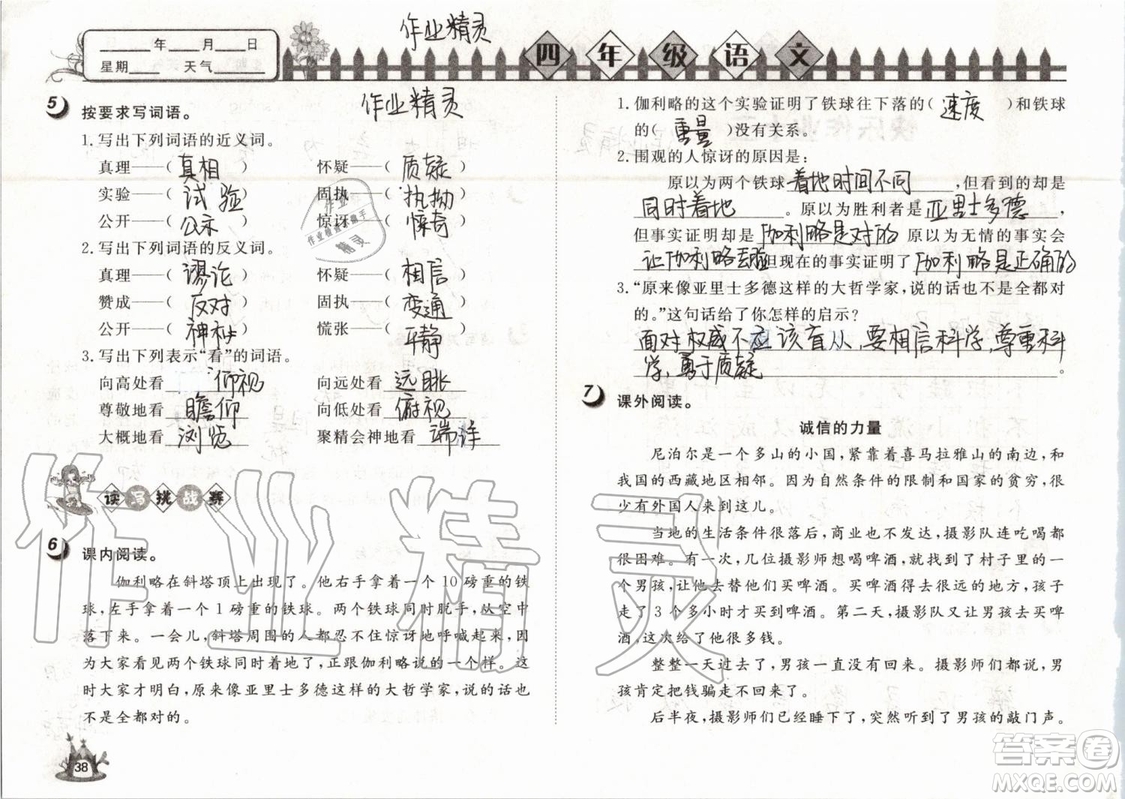 作业精灵
____年____月____日
星期____ 天气____
四年级语文
5 按要求写词语。
作业精灵
1.写出下列词语的近义词。
真理——( 真相 ) 怀疑——( 质疑 )
实验——( 试验 ) 固执——( 执拗 )
公开——( 公示 ) 惊讶——( 惊奇 )
2.写出下列词语的反义词。
真理——( 谬论 ) 怀疑——( 相信 )
赞成——( 反对 ) 固执——( 变通 )
公开——( 神秘 ) 慌张——( 平静 )
3.写出下列表示“看”的词语。
向高处看 仰视 向远处看 远眺
尊敬地看 瞻仰 向低处看 俯视
大概地看 浏览 聚精会神地看 端详
读写挑战赛
6 课内阅读。
伽利略在斜塔顶上出现了。他右手拿着一个 10 磅重的铁
球,左手拿着一个 1 磅重的铁球。两个铁球同时脱手,从空中
落下来。一会儿,斜塔周围的人都忍不住惊讶地呼喊起来,因
为大家看见两个铁球同时着地了,正跟伽利略说的一个样。这
时大家才明白,原来像亚里士多德这样的大哲学家,说的话也
不是全都对的。
38
1.伽利略的这个实验证明了铁球往下落的( 速度 )和铁球
的( 重量 )没有关系。
2.围观的人惊讶的原因是:
原以为两个铁球 着地时间不同 ,但看到的却是
同时着地 。原以为胜利者是 亚里士多德 ,
但事实证明却是 伽利略是对的 原以为无情的事实会
让伽利略丢脸 但现在的事实证明了 伽利略是正确的
3.“原来像亚里士多德这样的大哲学家,说的话也不是全都对
的。”这句话给了你怎样的启示?
面对权威不应该盲从,要相信科学,尊重科
学,勇于质疑 。
7 课外阅读。
诚信的力量
尼泊尔是一个多山的小国,紧靠着喜马拉雅山的南边,和
我国的西藏地区相邻。因为自然条件的限制和国家的贫穷,很
少有外国人来到这儿。
当地的生活条件很落后,商业也不发达,摄影队连吃喝都
很困难。有一次,几位摄影师想喝啤酒,就找到了村子里的一
个男孩,让他去替他们买啤酒。买啤酒得去很远的地方,孩子
走了 3 个多小时才买到啤酒。第二天,摄影队又让男孩去买啤
酒,这次给了他很多钱。
整整一天过去了,男孩一直没有回来。摄影师们都说,男
孩肯定把钱骗走不回来了。
后半夜,摄影师们已经睡下了,突然听到了男孩的敲门声。
作业精灵
答案圈
MXQE.COM